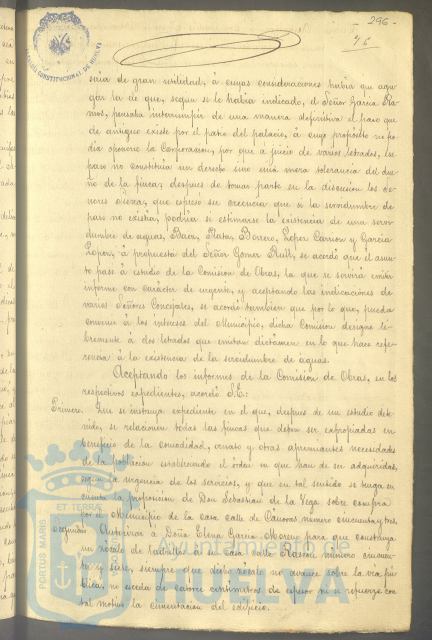 296
76
sería de gran utilidad, á cuyas consideraciones había que agre-
gar la de que, según se le había indicado, el Señor García Ra-
mos, pensaba interrumpir de una manera definitiva el paso que
de antiguo existe por el patio del palacio, á cuyo propósito no po-
día oponerse la Corporación, por que á juicio de varios letrados, ese
paso no constituía un derecho sino una mera tolerancia del due-
ño de la finca; después de tomar parte en la discusión los Se-
ñores que expuso su creencia que si la servidumbre de
paso no existía, podría si estimarse la existencia de una servi-
dumbre de aguas, Baez, Plata, Borrero, Lopez Carrion y Garcia
Lopez, á propuesta del Señor Gomez Rull, se acordó que el asun-
to pase á estudio de la Comisión de Obras, la que se servirá emitir
informe con carácter de urgente, y aceptando las indicaciones de
varios Señores Concejales, se acordó también que por lo que, pueda
convenir á los intereses del Municipio, dicha Comisión designe li-
bremente á dos letrados que emitan dictámen en lo que hace refe-
rencia á la existencia de la servidumbre de aguas.
Aceptando los informes de la Comisión de Obras, en los
respectivos expedientes, acordó S.E.:
Primero. Que se instruya expediente en el que, después de un estudio dete-
nido, se relacionen todas las fincas que deben ser expropiadas en
beneficio de la comodidad, ornato y otras apremiantes necesidades
de la población estableciendo el órden en que han de ser adquiridas,
según la urgencia de los servicios, y que en tal sentido se tenga en
cuenta la proposición de Don Sebastian de la Vega sobre compra
por el Municipio de la casa calle de Cánovas número cincuenta y tres.
Segundo. Autorizar á Doña Elena Garcia Moreno para que construya
un zócalo de ladrillos en su casa calle Rascón, número cincuen-
ta y siete, siempre que dicho zócalo no avance sobre la vía pú-
blica, no exceda de catorce centímetros de espesor ni se refuerce con
tal motivo la cimentación del edificio.
Ayuntamiento de
HUELVA
PORTUS MARIS
ET TERRAE